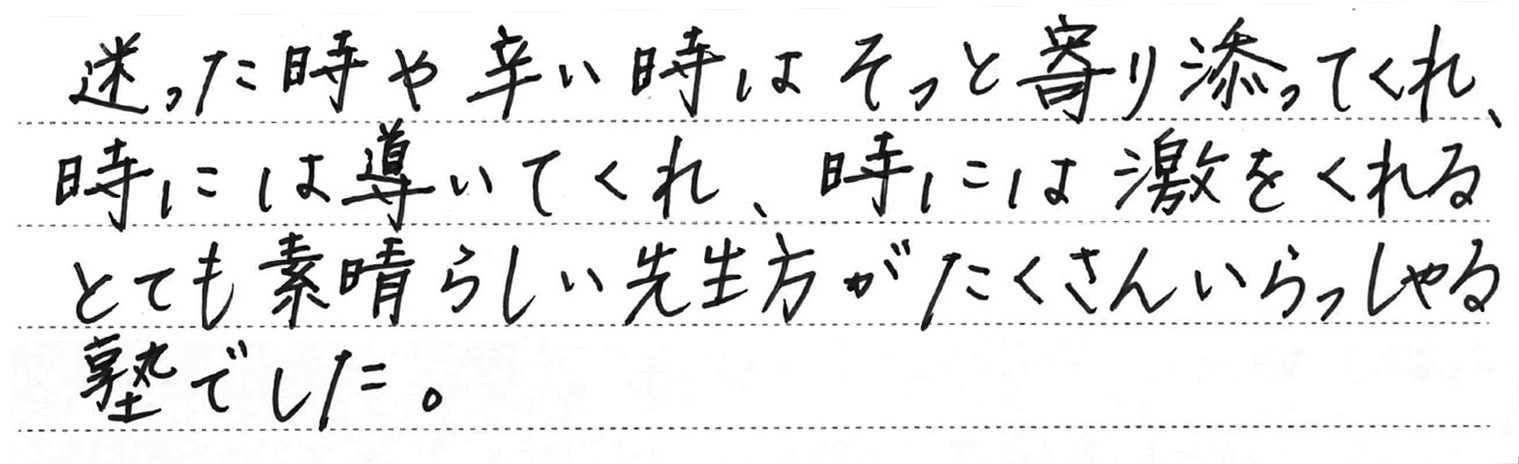 迷った時や辛い時はそっと寄り添ってくれ、
時には導いてくれ、時には激をくれる
とても素晴らしい先生方がたくさんいらっしゃる
塾でした。